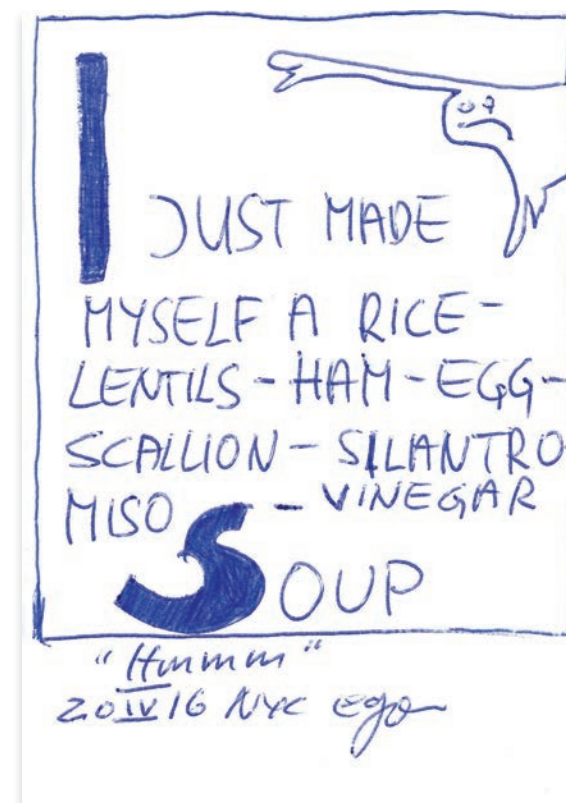 I
JUST MADE
MYSELF A RICE-
LENTILS-HAM-EGG-
SCALLION-SILANTRO
MISO - VINEGAR
SOUP
"Hmmmm"
20 IV 16 NYC ego